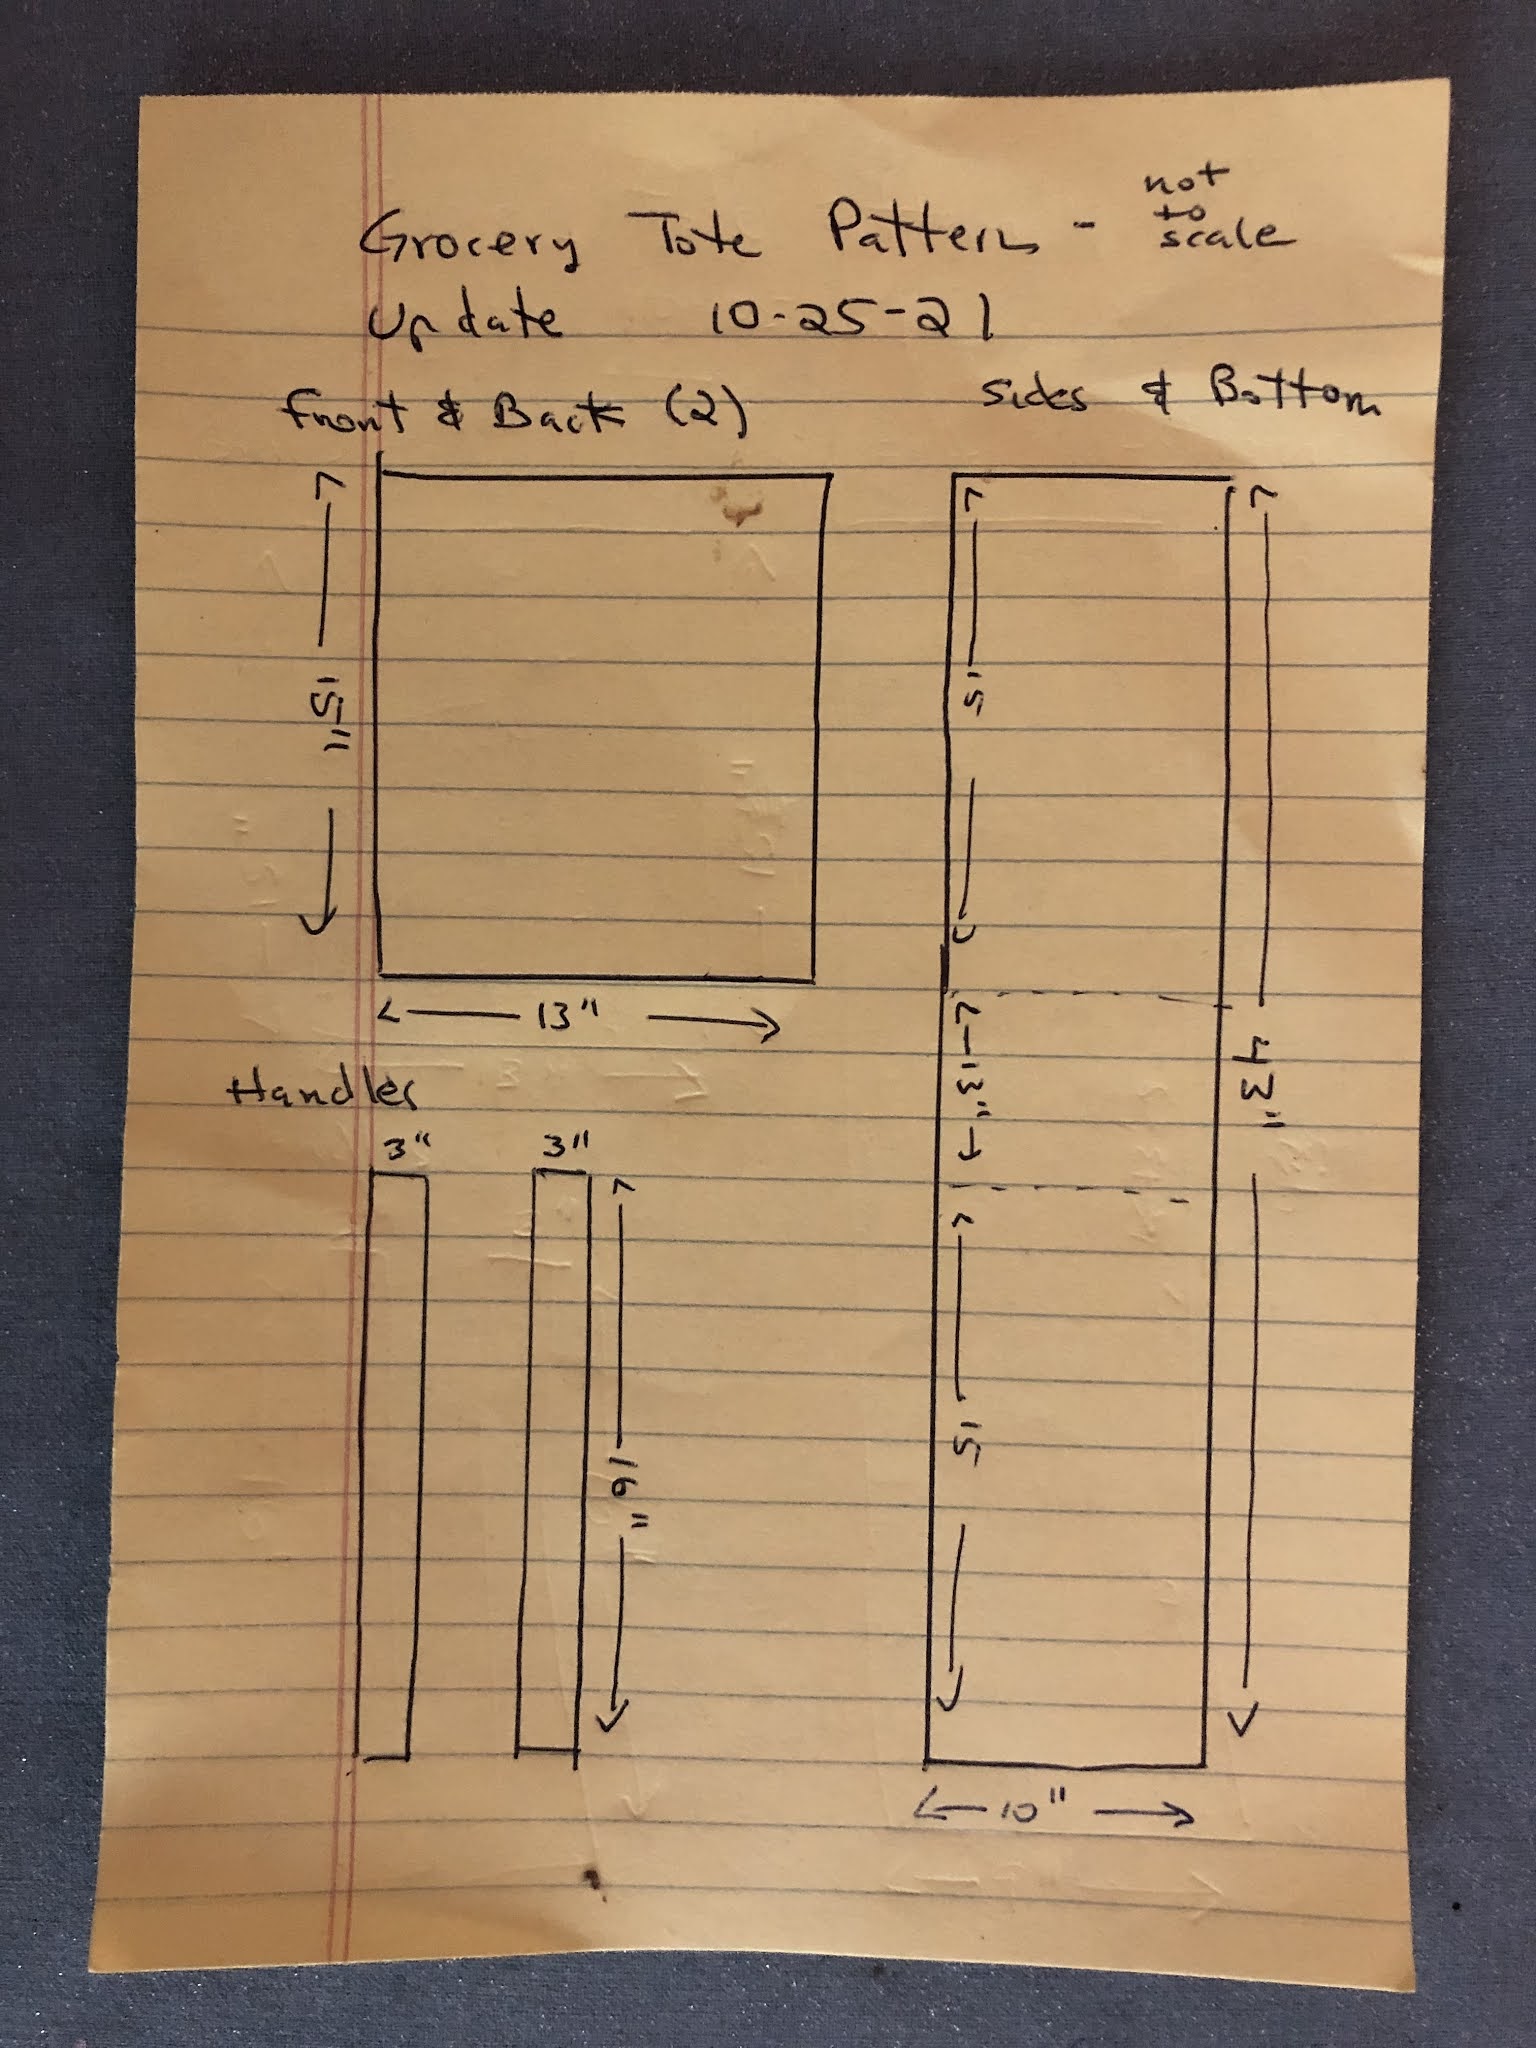 Grocery Tote Pattern - not to scale
Update 10-25-21
Front & Back (2)
Sides & Bottom
15"
13"
15
13"
15
43"
10"
Handles
3"
3"
16"